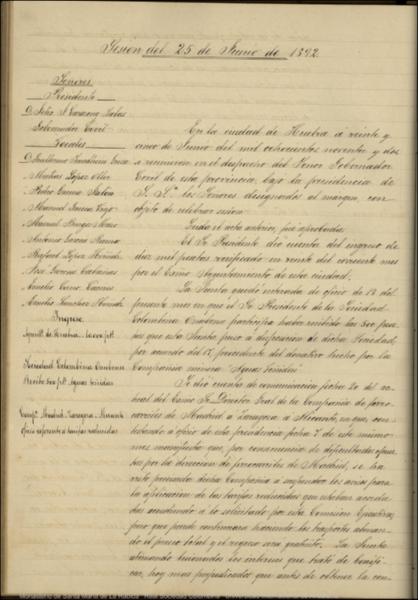 Sesión del 25 de Junio de 1892.
Señores
Presidente
Gobernador Civil
Vocales
D. Guillermo
Matías López
Pedro García
Manuel García
Manuel
Antonio García
Rafael López
José García Cabañas
Amelio Cano
Emilio Sánchez
Ingreso
Ayunt. de Huelva
Sociedad Colombina Onubense
Recibo 500 pts. Aguas teñidas
Comp. Madrid, Zaragoza, Alicante
oficio referente a tarifas reducidas
En la ciudad de Huelva a veinte y
cinco de Junio del mil ochocientos noventa y dos
reunieron en el despacho del Señor Gobernador
Civil de esta provincia, bajo la presidencia de
S. Sª los Señores designados al margen, con
objeto de celebrar sesión.
Leida el acta anterior, fué aprobada.
El Sr. Presidente dió cuenta del ingreso de
diez mil pesetas verificado en veinte del corriente mes
por el Excmo Ayuntamiento de esta ciudad.
La Junta quedó enterada de oficio de 13 del
presente mes en que el Sr. Presidente de la Sociedad
Colombina Onubense participa haber recibido las 500 pese-
tas que esta Junta puso a disposicion de dicha Sociedad,
por acuerdo del 17, procedente del donativo hecho por la
Compañia minera "Aguas Teñidas"
Se dió cuenta de comunicación fecha 20 del ac-
tual del Excmo Sr. Director Gral de la Compañia de ferro-
carriles de Madrid a Zaragoza y Alicante, en que, con-
testando a oficio de esta presidencia fecha 7 de este mismo
mes manifiesta que, por consecuencia de dificultades opues-
tas por la direccion de ferrocarriles de Madrid, se ha
visto precisada dicha Compañia a suspender los avisos para
la aplicacion de las tarifas reducidas que estaban acorda-
das accediendo a lo solicitado por esta Comisión
pero que puede continuarse haciendo los trasportes abonan-
do el precio total y el regreso será gratuito. La Junta
estimando lesionados los intereses que trata de benefi-
ciar, hoy mas perjudicados que antes de obtener la con-